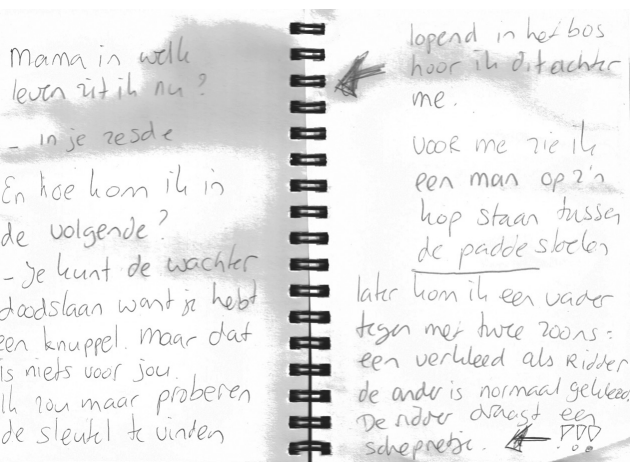 Mama in welk
leven zit ik nu?
- in je zesde
En hoe kom ik in
de volgende?
- Je kunt de wachter
doodslaan want je hebt
een knuppel. Maar dat
is niets voor jou.
Ik zou maar proberen
de sleutel te vinden
lopend in het bos
hoor ik dit achter
me.
VOOR me zie ik
een man op z'n
kop staan tussen
de paddestoelen
later kom ik een vader
tegen met twee zoons:
een verkleed als Ridder
de ander is normaal gekleed.
De ridder draagt een
schepnetje. !!!